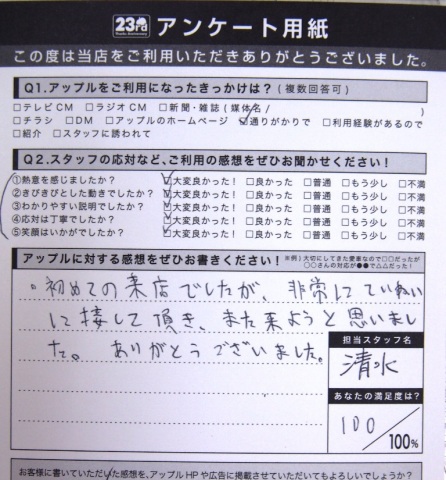 23rd アンケート用紙
この度は当店をご利用いただきありがとうございました。
Q1.アップルをご利用になったきっかけは?(複数回答可)
□テレビCM □ラジオCM □新聞・雑誌(媒体名/ )
□チラシ □DM □アップルのホームページ ☑通りがかりで □利用経験があるので
□紹介 □スタッフに誘われて
Q2.スタッフの応対など、ご利用の感想をぜひお聞かせください!
①熱意を感じましたか? ☑大変良かった! □良かった □普通 □もう少し □不満
②きびきびとした動きでしたか? ☑大変良かった! □良かった □普通 □もう少し □不満
③わかりやすい説明でしたか? ☑大変良かった! □良かった □普通 □もう少し □不満
④応対は丁寧でしたか? ☑大変良かった! □良かった □普通 □もう少し □不満
⑤笑顔はいかがでしたか? ☑大変良かった! □良かった □普通 □もう少し □不満
アップルに対する感想をぜひお書きください!
※例)大切にしてきた愛車なので○□だったが
○○さんの対応が●●で△△だった!
。初めての来店でしたが、非常にていねい
に接して頂き、また来ようと思いまし
た。 ありがとうございました。
担当スタッフ名
清水
あなたの満足度は?
100/100%
お客様に書いていただいた感想を、アップルHPや広告に掲載させていただいてもよろしいでしょうか?